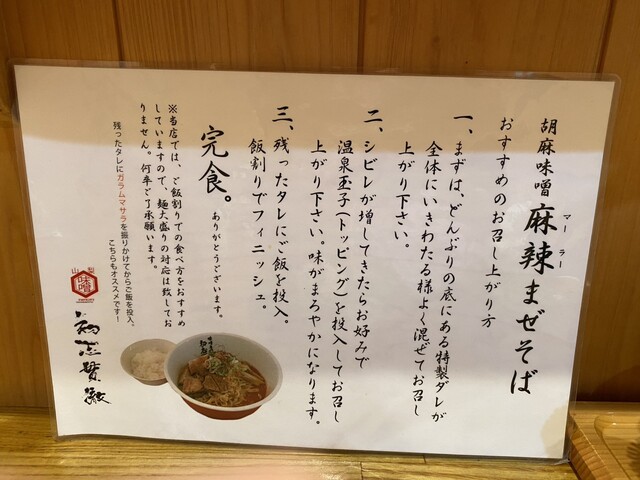 胡麻味噌 麻辣まぜそば
マー ラー
おすすめのお召し上がり方
一、まずは、どんぶりの底にある特製ダレが
全体にいきわたる様よく混ぜてお召し
上がり下さい。
二、シビレが増してきたらお好みで
温泉玉子(トッピング)を投入してお召し
上がり下さい。味がまろやかになります。
三、残ったタレにご飯を投入。
飯割りでフィニッシュ。
完食。
ありがとうございます。
※当店では、ご飯割りでの食べ方をおすすめ
していますので、麺大盛りの対応は致してお
りません。何卒ご了承願います。
残ったタレにガラムマサラを振りかけてからご飯を投入、
こちらもオススメです!
山梨
味噌